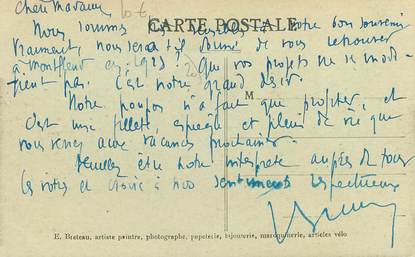 Chère Madame
CARTE POSTALE
Nous sommes très sensibles à votre bon souvenir
Vraiment, nous sera-t-il donné de vous retrouver
à Montfleur en 1923? Que vos projets ne se modi-
fient pas. C'est notre grand désir.
M
Notre poupon n'a fait que profiter, et
c'est une fillette, espiègle et pleine de vie que
vous verrez aux vacances prochaines.
Veuillez être notre interprète auprès de tous
les vôtres et croire à nos sentiments respectueux
E. Breteau, artiste peintre, photographe, papeterie, bijouterie, maroquinerie, articles vélo